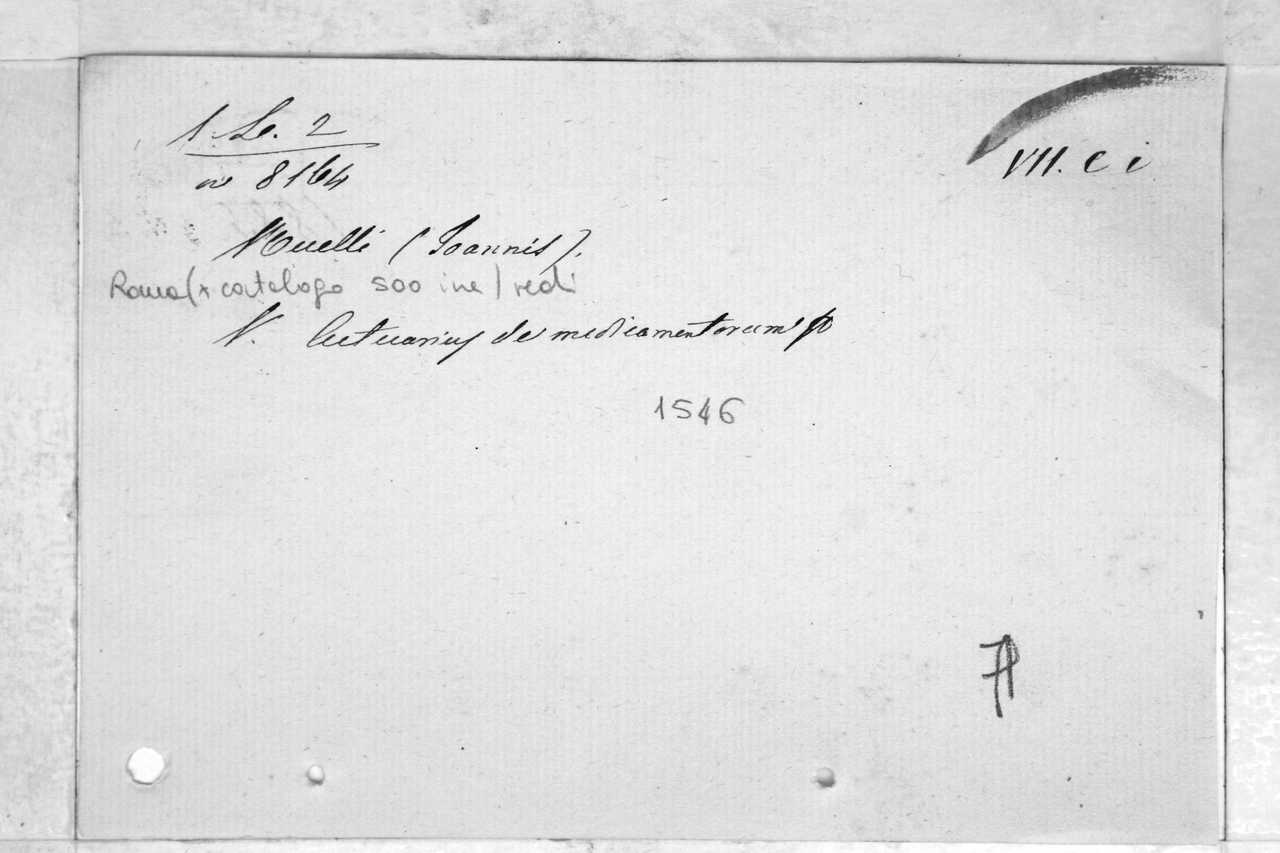 1. Le. 2
nº 8164
VII. C i
Ruelli (Joannis).
Roma (x catalogo 500 ine) vedi
V. Actuarius de medicamentorum
1546